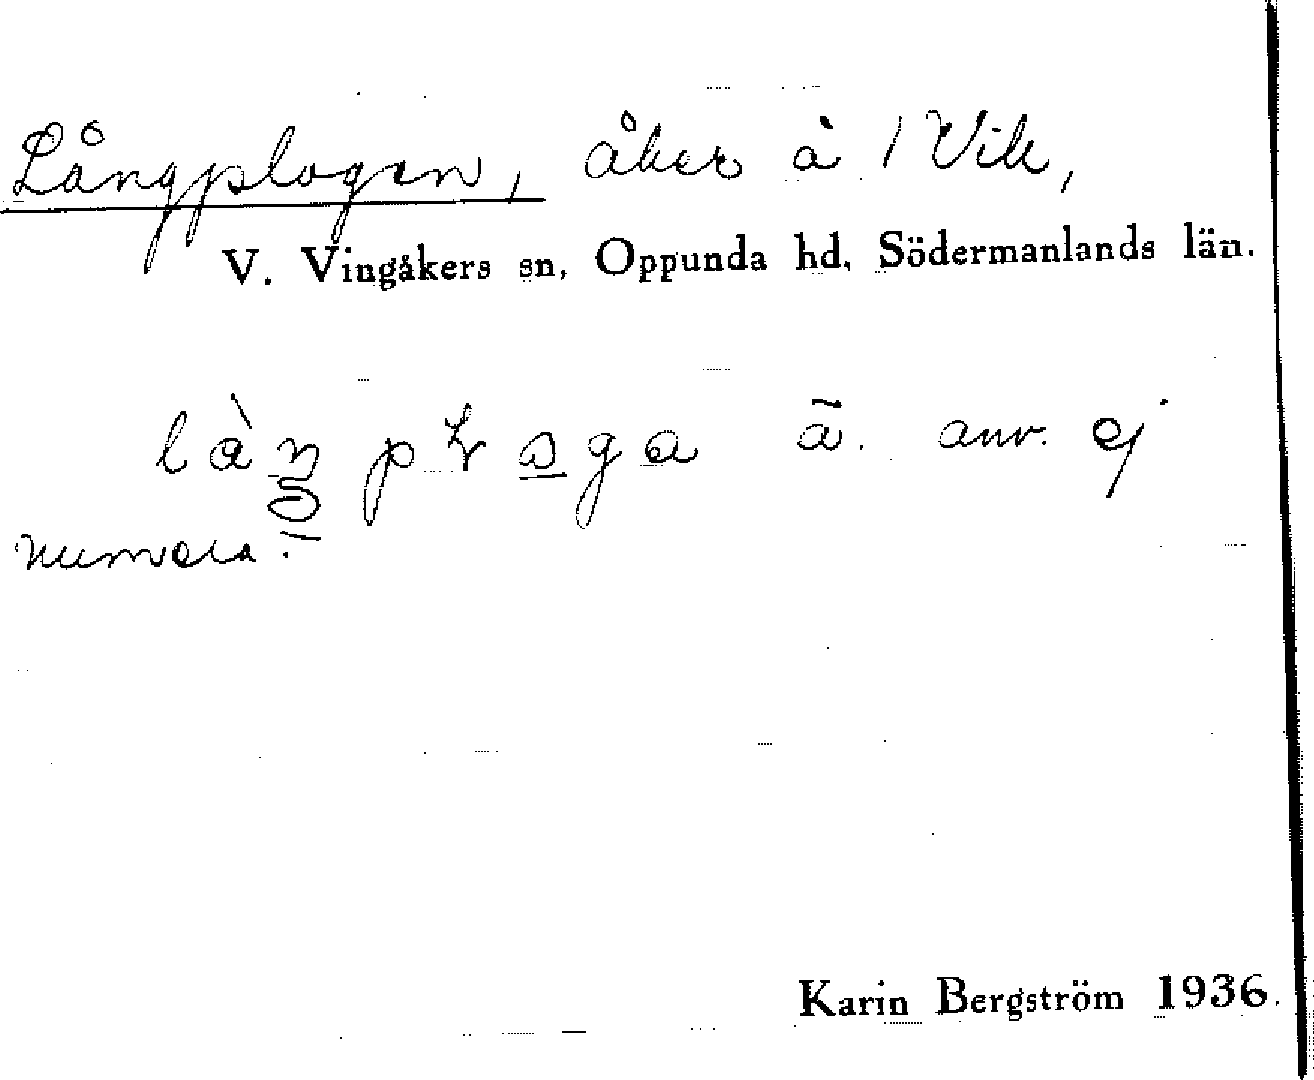 Långplogen, åker å 1 Vik,
V. Vingåkers sn, Oppunda hd, Södermanlands län.
ā. anv. ej
numera.
Karin Bergström 1936.